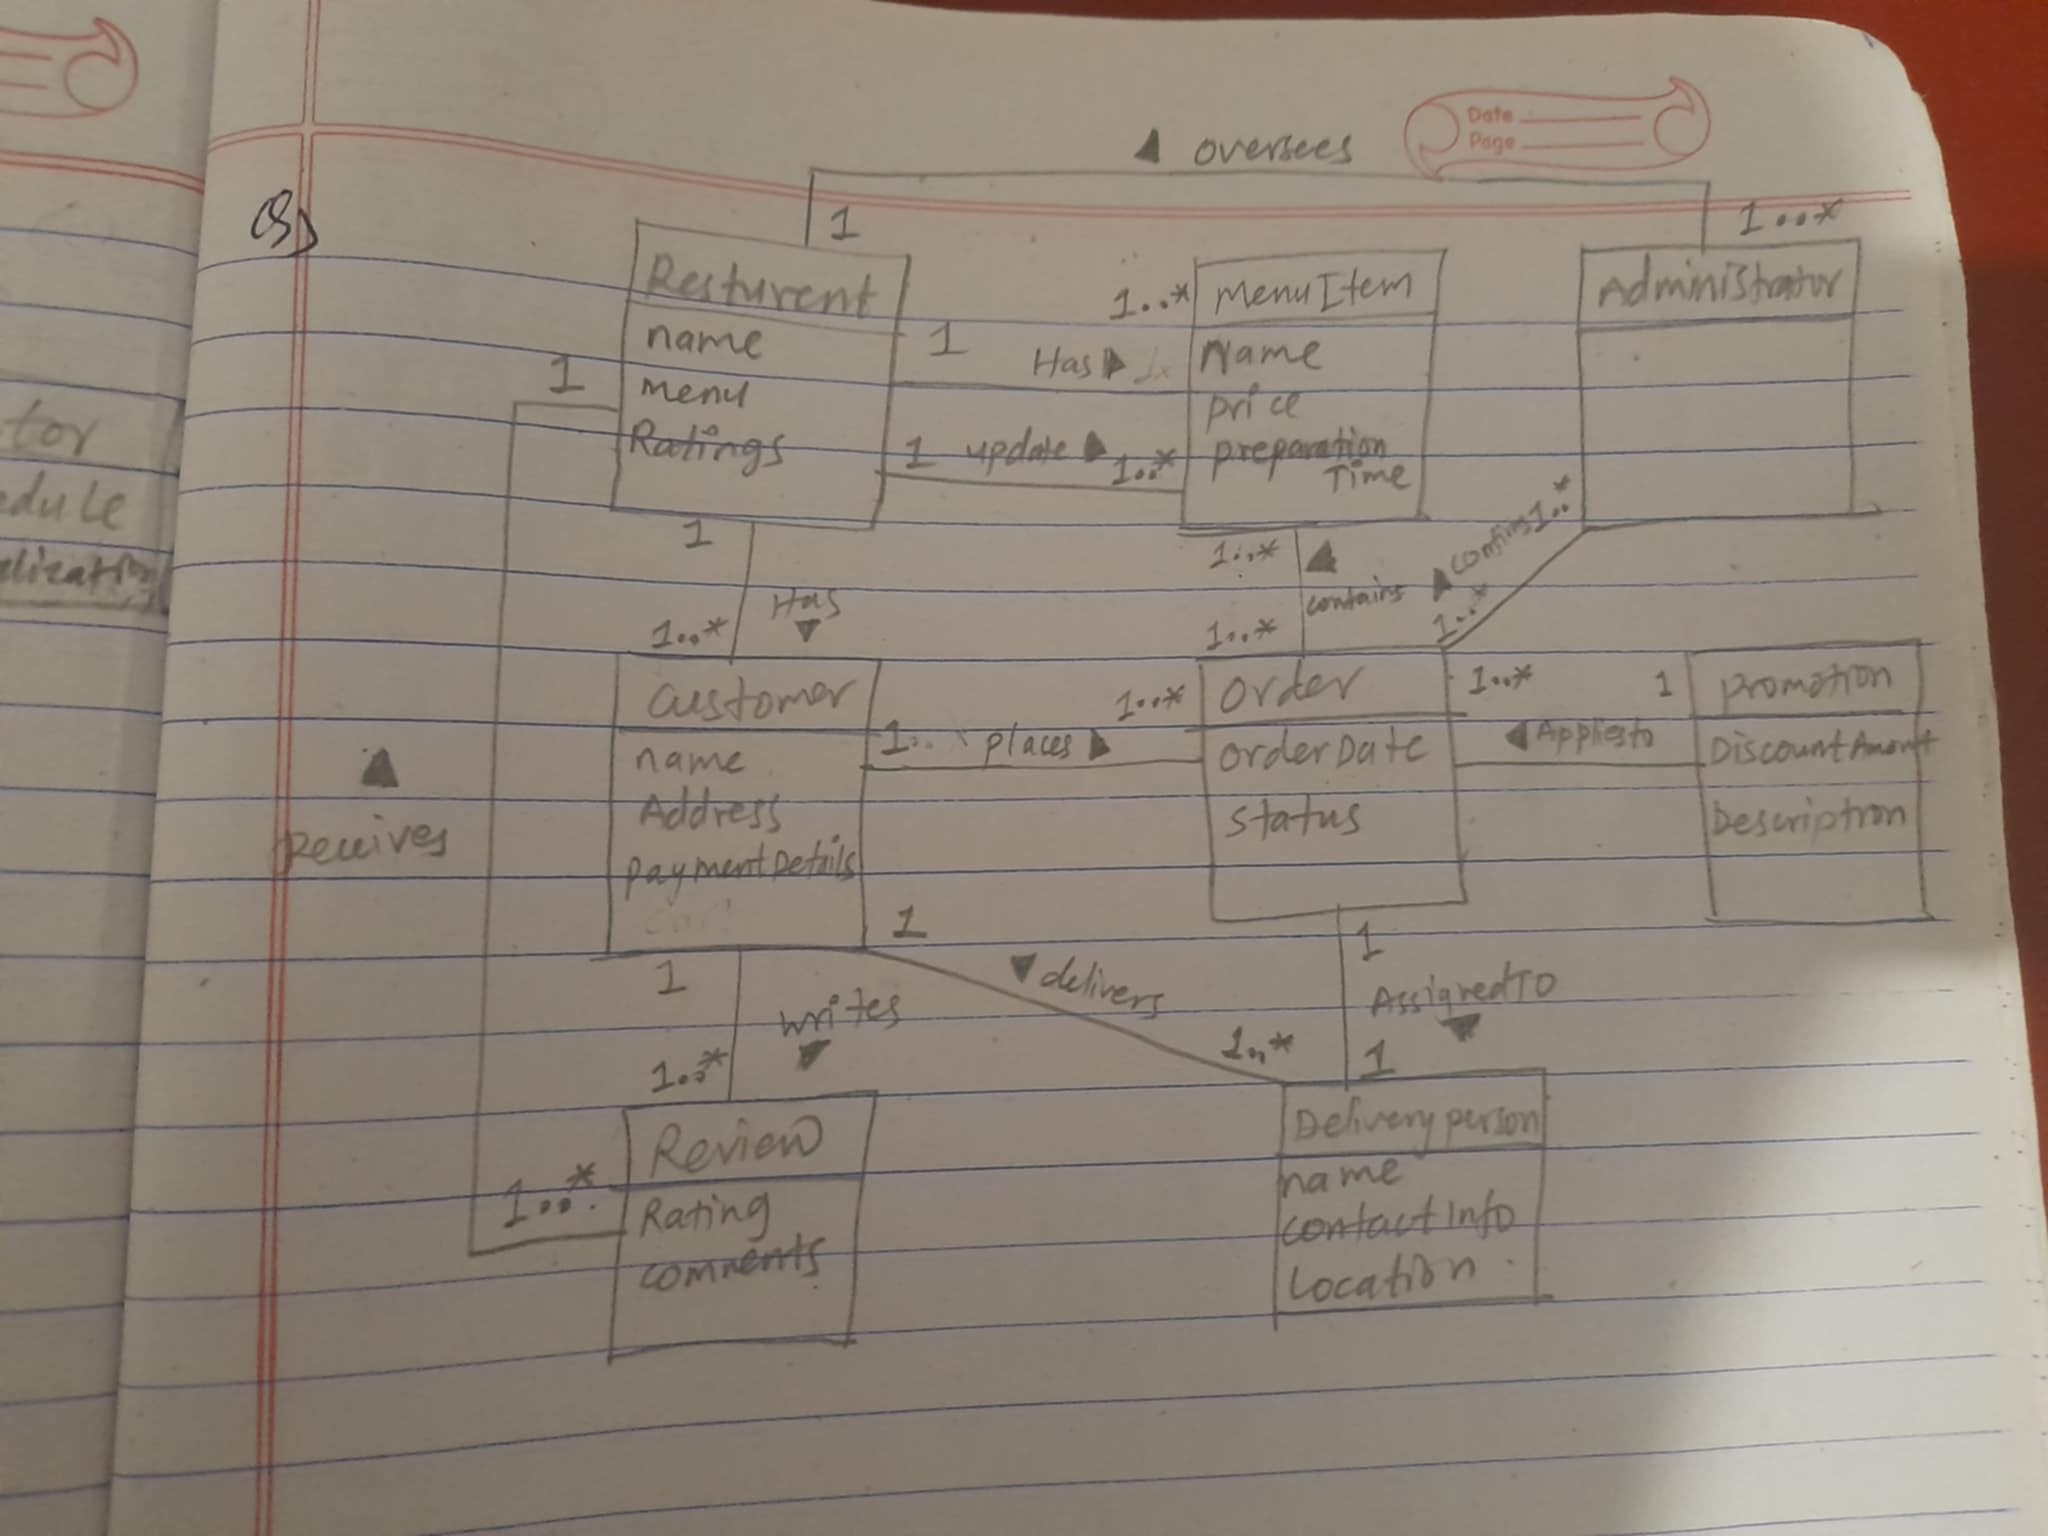 Date
Page
oversees
1
1..*
Resturent
name
menu
Ratings
1
Has
1..*
1 update 1..*
MenuItem
Name
price
preparation
Time
Administrator
1
1
Has
1..*
1..*
contains
1..*
confirms
1..*
1..*
Customer
name
Address
paymentDetails
1..
places
1..*
Order
OrderDate
Status
1..*
1
Appliesto
promotion
DiscountAmount
Description
Receives
1
writes
1..*
1
delivers
1..*
1
AssignedTo
1
Review
Rating
comments
1..*
Deliveryperson
name
contactInfo
Location
tor
edule